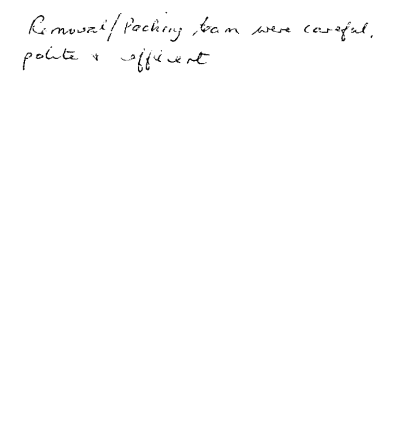 Removal/Packing team were careful,
polite & efficient